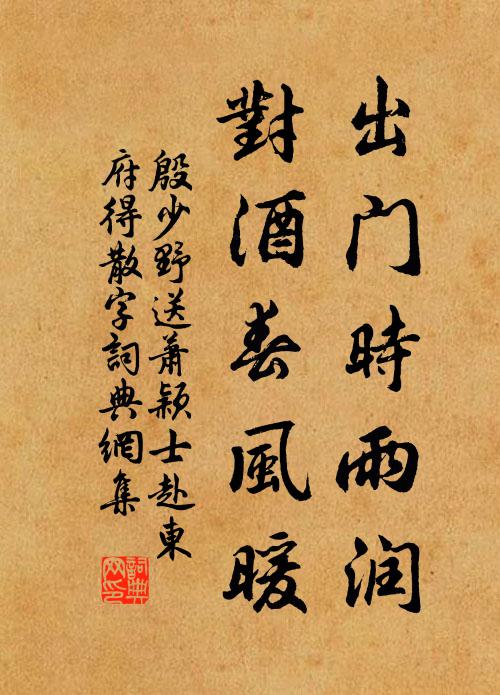 出门時雨润
對酒春風暖
殷少野送蕭颖士赴東
府得散字詞典網集
詞典
网印